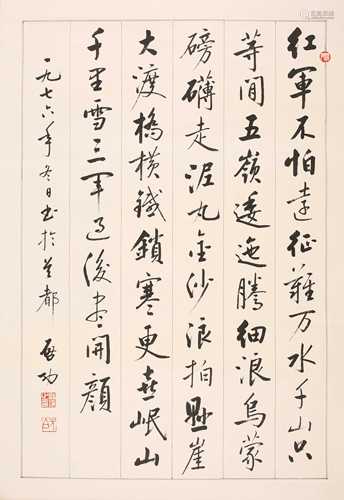 红軍不怕遠征難万水千山只
等间五嶺逶迤騰細浪烏蒙
磅礴走泥丸金沙浪拍悬崖
大渡橋横鐵鎖寒更喜岷山
千里雪三军过後尽開顔
一九七六年冬日书於首都 啟功